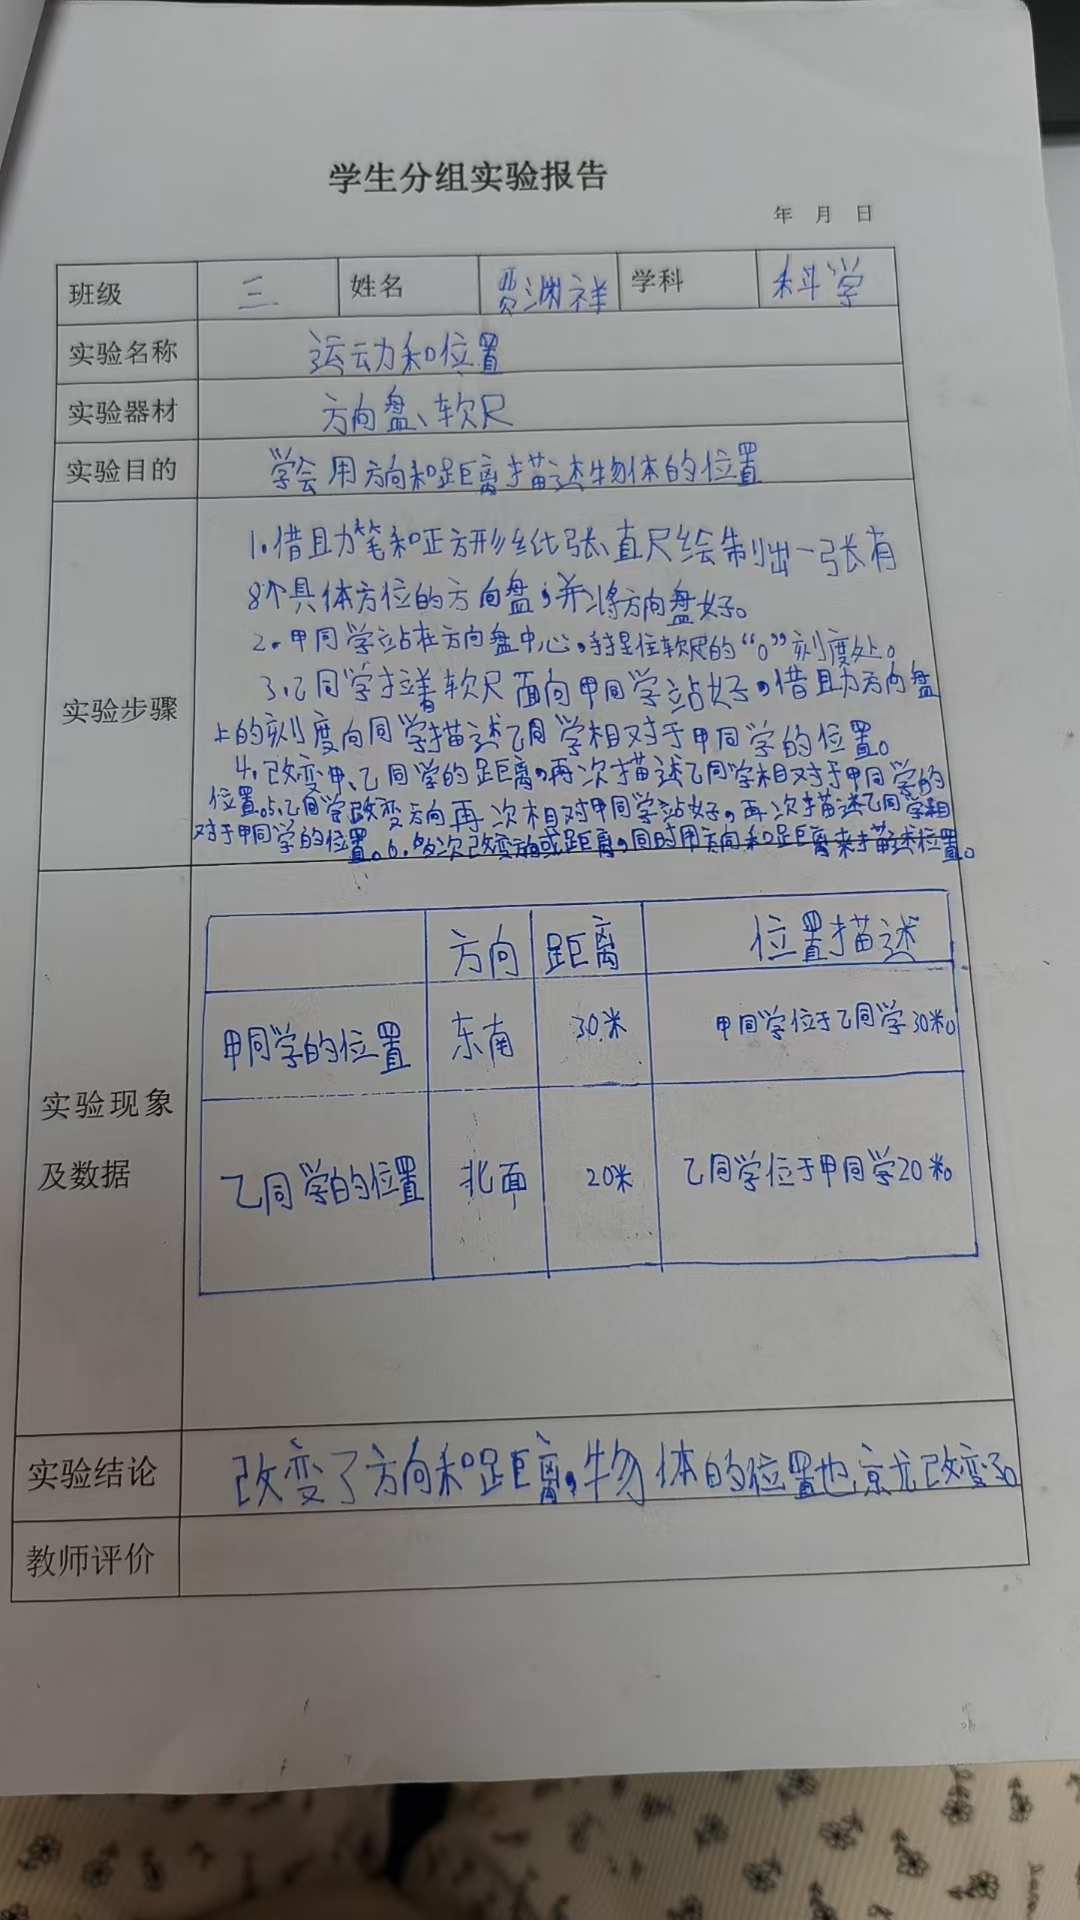 学生分组实验报告
年 月 日
班级 三 姓名 费渊祥 学科 科学
实验名称 运动和位置
实验器材 方向盘、软尺
实验目的 学会用方向和距离描述物体的位置
实验步骤
1.借助笔和正方形纸张、直尺绘制出一张有
8个具体方位的方向盘,并将方向盘好。
2.甲同学站在方向盘中心,手捏住软尺的“0”刻度处。
3.乙同学拉着软尺面向甲同学站好,借助方向盘
上的刻度向同学描述乙同学相对于甲同学的位置。
4.改变甲、乙同学的距离,再次描述乙同学相对于甲同学的
位置。5.乙同学改变方向再次相对甲同学站好,再次描述乙同学相
对于甲同学的位置。6.多次改变方向或距离,同时用方向和距离来描述位置。
实验现象
及数据
方向 距离 位置描述
甲同学的位置 东南 30米 甲同学位于乙同学30米。
乙同学的位置 北面 20米 乙同学位于甲同学20米。
实验结论 改变了方向和距离,物体的位置也就改变了。
教师评价